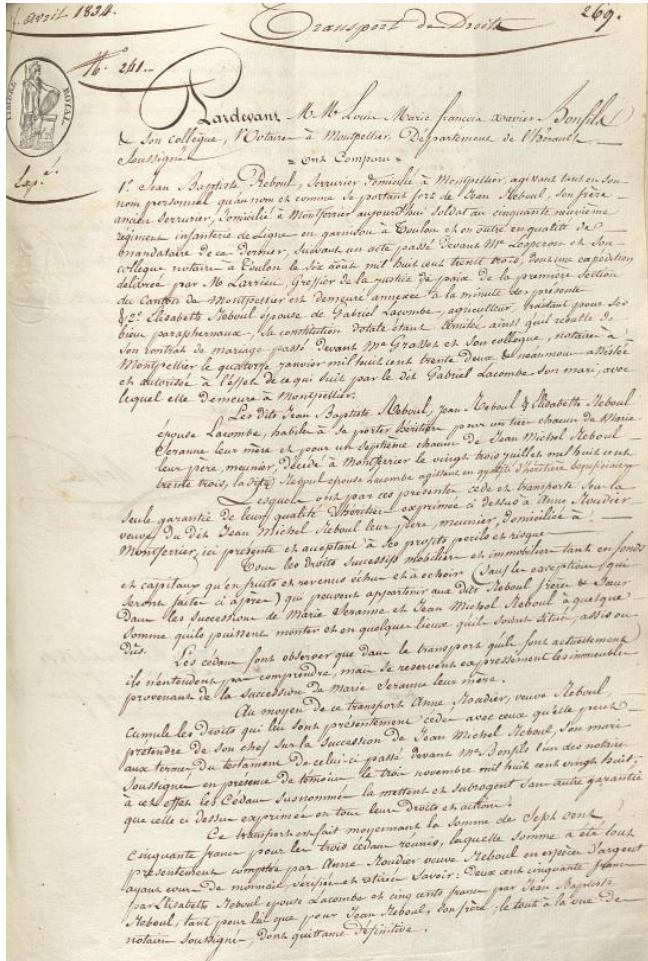 avril 1834.
Transport de Droits
269.
N.° 241.
TIMBRE ROYAL.
Pardevant M.e M.e Louis Marie françois Xavier Bonfils
& son collègue, Notaires à Montpellier, Département de l'hérault
Soussignés
= ont Comparu =
Exp.é
1.° Jean Baptiste Reboul, Serrurier domicilié à Montpellier, agissant tant en son
nom personnel qu'au nom et comme se portant fort de Jean Reboul, son frère
ancien Serrurier, domicilié à Montferrier aujourd'hui soldat au cinquante neuvième
régiment infanterie de Ligne en garnison à Toulon et en outre en qualité de
mandataire de ce dernier, suivant un acte passé devant M.e Lesperon et son
collègue notaires à Toulon le six août mil huit cent trente trois, dont une expédition
délivrée par M. Larrieu, Greffier de la justice de paix de la première Section
du Canton de Montpellier est demeurée annexée à la minute des présentes
& 2.° Elisabeth Reboul épouse de Gabriel Lacombe, agriculteur, traitant pour ses
biens paraphernaux, sa constitution dotale étant limitée, ainsi qu'il résulte de
son contrat de mariage passé devant M.e Grasset et son collègue, notaires à
Montpellier le quatorze janvier mil huit cent trente deux, & néanmoins assistée
et autorisée à l'effet de ce qui suit par le dit Gabriel Lacombe son mari, avec
lequel elle demeure à Montpellier.
Les dits Jean Baptiste Reboul, Jean Reboul & Elisabeth Reboul
épouse Lacombe, habiles à se porter héritiers pour un tiers chacun de Marie
Seranne leur mère et pour un septième chacun de Jean Michel Reboul
leur père, meunier, décédé à Montferrier le vingt trois juillet mil huit cent
trente trois, la dite Reboul épouse Lacombe agissant en qualité d'héritière bénéficiaire
Lesquels ont par ces présentes cédé et transporté sous la
seule garantie de leur qualité d'héritiers exprimée ci dessus à Anne Roudier
veuve du dit Jean Michel Reboul leur père, meunier, domiciliée à
Montferrier, ici présente et acceptant à ses profits périls et risques
Tous les droits successifs mobiliers et immobiliers tant en fonds
et capitaux qu'en fruits et revenus échus et à échoir (sauf les exceptions qui
seront faites ci après) qui peuvent appartenir aux dits Reboul frères & Sœur
dans les successions de Marie Seranne et Jean Michel Reboul à quelque
somme qu'ils puissent monter et en quelques lieux qu'ils soient situés, assis ou
dûs.
Les cédans font observer que dans le transport qu'ils font actuellement
ils n'entendent pas comprendre, mais se réservent expressément les immeubles
provenant de la succession de Marie Seranne leur mère.
Au moyen de ce transport Anne Roudier, veuve Reboul,
cumule les droits qui lui sont présentement cédés avec ceux qu'elle peut
prétendre de son chef sur la succession de Jean Michel Reboul, son mari
aux termes du testament de celui-ci passé devant M.e Bonfils l'un des notaires
soussignés en présence de témoins le trois novembre mil huit cent vingt huit;
à cet effet les Cédans susnommés la mettent et subrogent sans autre garantie
que celle ci dessus exprimée en tous leurs droits et actions.
Ce transport est fait moyennant la somme de Sept cent
cinquante francs pour les trois cédans réunis, laquelle somme a été tout
présentement comptée par Anne Roudier veuve Reboul en espèces d'argent
ayant cours de monnaie, vérifiée et retirée Savoir: Deux cent cinquante francs
par Elisabeth Reboul épouse Lacombe et cinq cents francs par Jean Baptiste
Reboul, tant pour lui que pour Jean Reboul, son frère; le tout à la vue des
notaires soussignés, dont quittance définitive.